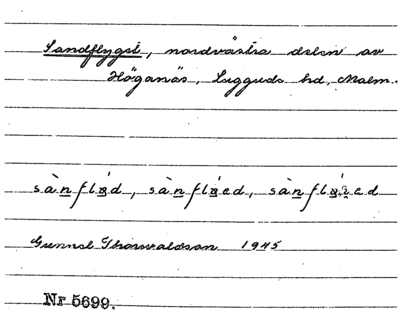 Sandflyget, nordvästra delen av
Höganäs, Luggude hd, Malm.
sànflød, sànfløed, sànflø̀ed
Gunnel Thorwaldson 1945
Nr 5699.